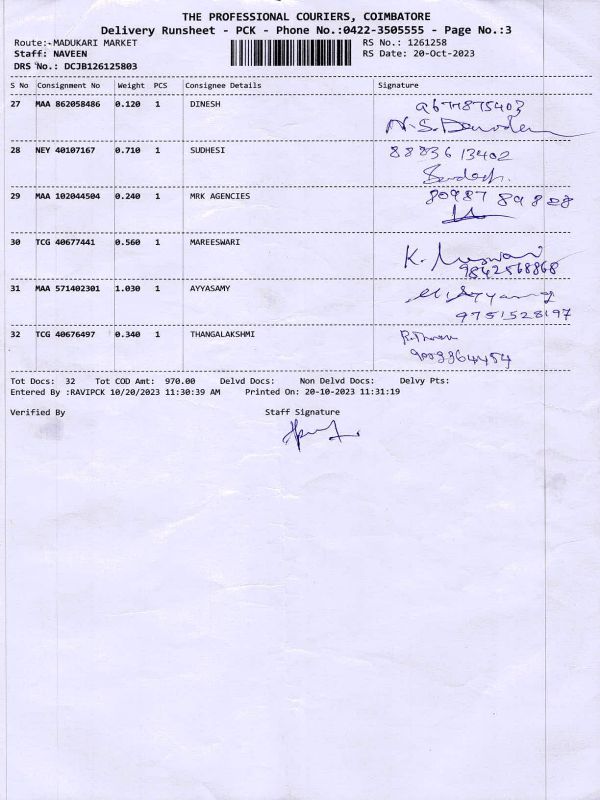 THE PROFESSIONAL COURIERS, COIMBATORE
Delivery Runsheet - PCK - Phone No.:0422-3505555 - Page No.:3
Route:-MADUKARI MARKET RS No.: 1261258
Staff: NAVEEN RS Date: 20-Oct-2023
DRS No.: DCJB126125803
S No Consignment No Weight PCS Consignee Details Signature
27 MAA 862058486 0.120 1 DINESH
28 NEY 40107167 0.710 1 SUDHESI 88836 13402
29 MAA 102044504 0.240 1 MRK AGENCIES 80987 89828
30 TCG 40677441 0.560 1 MAREESWARI K.
9842568868
31 MAA 571402301 1.030 1 AYYASAMY
9751528197
32 TCG 40676497 0.340 1 THANGALAKSHMI
Tot Docs: 32 Tot COD Amt: 970.00 Delvd Docs: Non Delvd Docs: Delvy Pts:
Entered By :RAVIPCK 10/20/2023 11:30:39 AM Printed On: 20-10-2023 11:31:19
Verified By Staff Signature